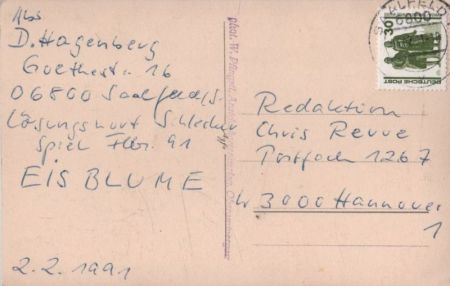 Abs
D. Hagenberg
Goethestr. 16
06800 Saalfeld/S.
Lösungswort Schlecker
Spiel Febr. 91
EISBLUME
2.2.1991
SAALFELD
6800
30
DEUTSCHE POST
Redaktion
Chris Revue
Postfach 1267
3000 Hannover
1